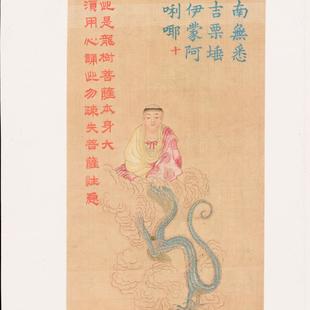 南無悉
吉栗埵
伊蒙阿
唎㖿
十
此是龍樹菩薩本身大
須用心誦此勿疎失菩薩性急